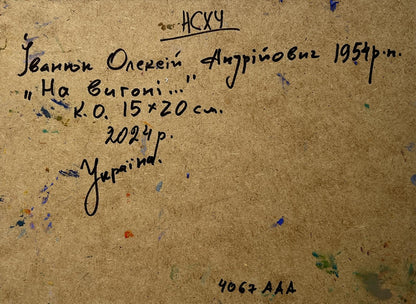 НСХУ
Іванюк Олексій Андрійович 1954р.н.
„На вигоні..."
К.О. 15×20 см.
2024р.
Україна.
4067 ААА